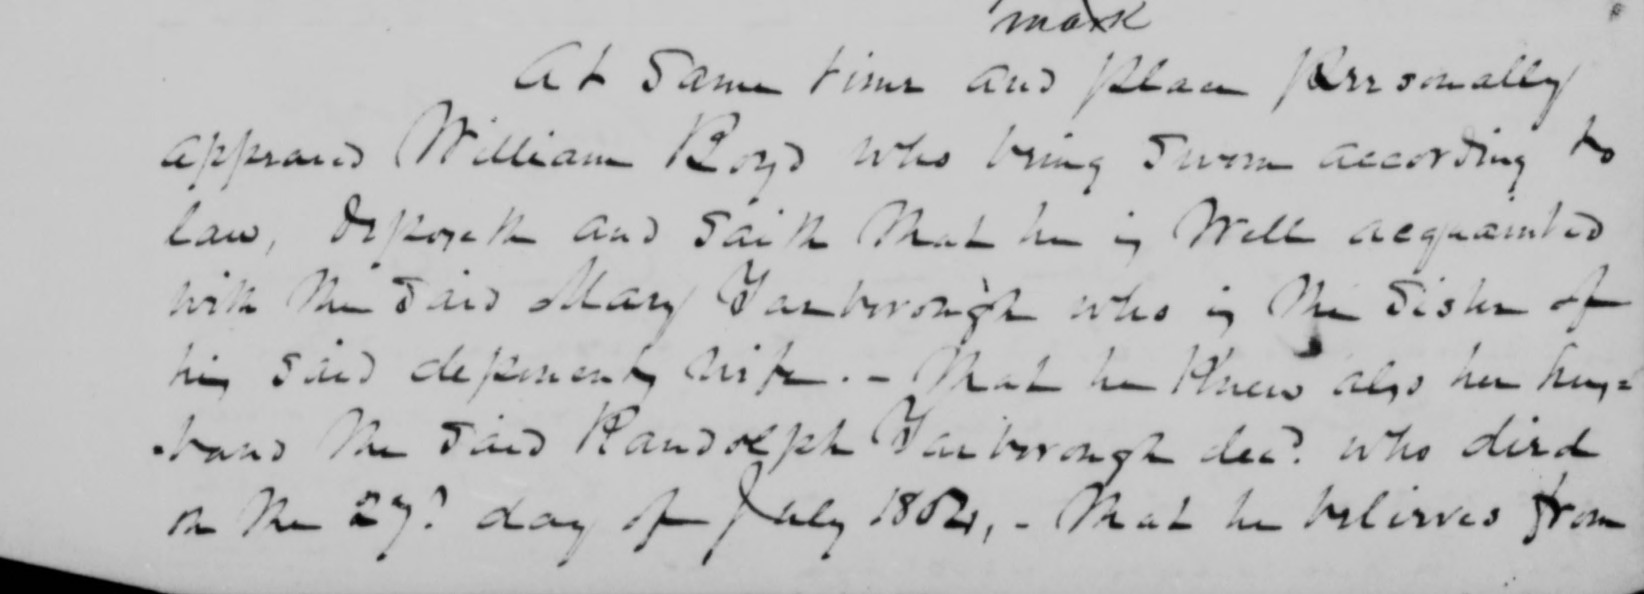 mark
At Same time and place personally
appeared William Boyd who being Sworn according to
law, deposeth and Saith that he is Well acquainted
with the Said Mary Yarborough who is the Sister of
his Said deponents wife. - that he Knew also her hus=
-band the Said Randolph Yarborough decd. who died
on the 27th day of July - that he believes from